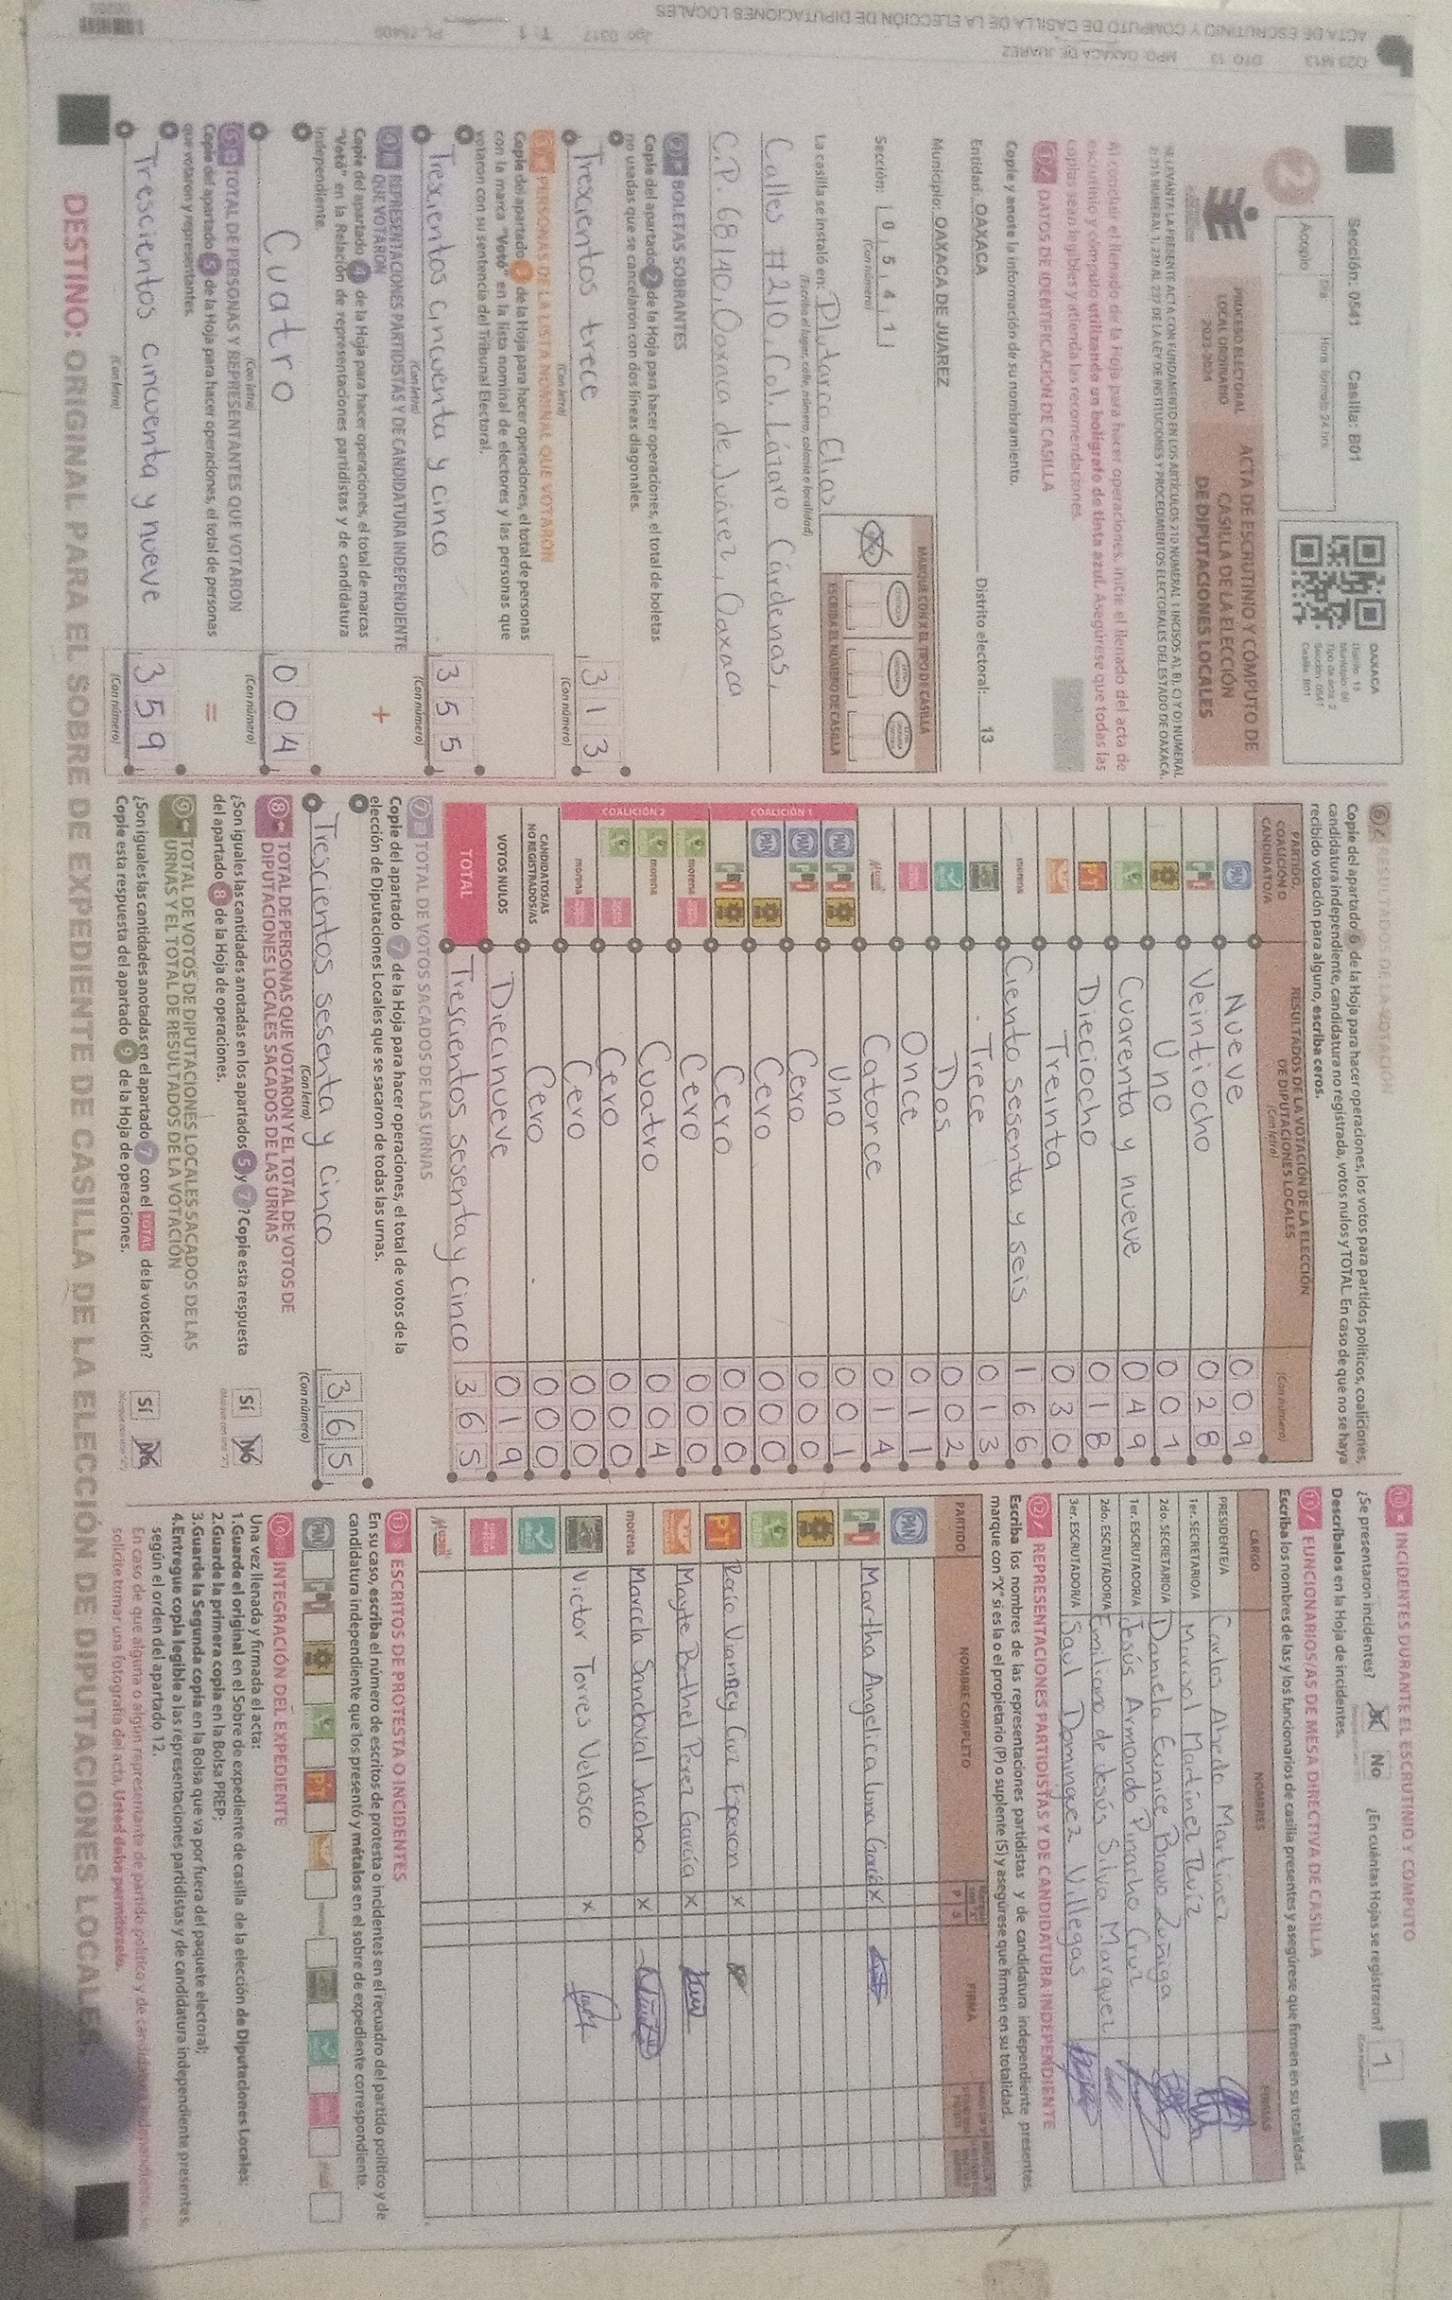 Sección: 0541 Casilla: B01
Acopio
Día
Hora (formato 24 hrs)
OAXACA
Distrito: 13
Sección: 0541
Casilla: B01
2
PROCESO ELECTORAL
LOCAL ORDINARIO
2023-2024
ACTA DE ESCRUTINIO Y CÓMPUTO DE
CASILLA DE LA ELECCIÓN
DE DIPUTACIONES LOCALES
SE LEVANTA LA PRESENTE ACTA CON FUNDAMENTO EN LOS ARTÍCULOS 210 NUMERAL 1 INCISOS A), B), C) Y D) NUMERAL
2; 215 NUMERAL 1; 230 AL 237 DE LA LEY DE INSTITUCIONES Y PROCEDIMIENTOS ELECTORALES DEL ESTADO DE OAXACA.
Al concluir el llenado de la Hoja para hacer operaciones, inicie el llenado del acta de
escrutinio y cómputo utilizando un bolígrafo de tinta azul. Asegúrese que todas las
copias sean legibles y atienda las recomendaciones.
1 DATOS DE IDENTIFICACIÓN DE CASILLA
Copie y anote la información de su nombramiento.
Entidad: OAXACA Distrito electoral: 13
Municipio: OAXACA DE JUAREZ
Sección: 0 5 4 1
(Con número)
MARQUE CON X EL TIPO DE CASILLA
ESCRIBA EL NÚMERO DE CASILLA
La casilla se instaló en: Plutarco Elias
(Escriba el lugar, calle, número, colonia o localidad)
Calles #210, Col. Lázaro Cárdenas,
C.P. 68140, Oaxaca de Juárez, Oaxaca
2 BOLETAS SOBRANTES
Copie del apartado 2 de la Hoja para hacer operaciones, el total de boletas
no usadas que se cancelaron con dos líneas diagonales.
Trescientos trece 313
(Con letra) (Con número)
3 PERSONAS DE LA LISTA NOMINAL QUE VOTARON
Copie del apartado 3 de la Hoja para hacer operaciones, el total de personas
con la marca "Votó" en la lista nominal de electores y las personas que
votaron con su sentencia del Tribunal Electoral.
Trescientos cincuenta y cinco 355
(Con letra) (Con número)
4 REPRESENTACIONES PARTIDISTAS Y DE CANDIDATURA INDEPENDIENTE
QUE VOTARON
+
Copie del apartado 4 de la Hoja para hacer operaciones, el total de marcas
"Votó" en la Relación de representaciones partidistas y de candidatura
independiente.
Cuatro 004
(Con letra) (Con número)
5 TOTAL DE PERSONAS Y REPRESENTANTES QUE VOTARON
=
Copie del apartado 5 de la Hoja para hacer operaciones, el total de personas
que votaron y representantes.
Trescientos cincuenta y nueve 359
(Con letra) (Con número)
6 RESULTADOS DE LA VOTACIÓN
Copie del apartado 6 de la Hoja para hacer operaciones, los votos para partidos políticos, coaliciones,
candidatura independiente, candidatura no registrada, votos nulos y TOTAL. En caso de que no se haya
recibido votación para alguno, escriba ceros.
PARTIDO,
COALICIÓN O
CANDIDATO/A
RESULTADOS DE LA VOTACIÓN DE LA ELECCIÓN
DE DIPUTACIONES LOCALES
(Con letra) (Con número)
PAN Nueve 009
PRI Veintiocho 028
Uno 001
Cuarenta y nueve 049
PT Dieciocho 018
Treinta 030
morena Ciento sesenta y seis 166
Trece 013
Dos 002
Once 011
Catorce 014
COALICIÓN 1
PAN PRI Uno 001
PAN PRI Cero 000
PAN Cero 000
PRI Cero 000
COALICIÓN 2
morena Cero 000
morena Cuatro 004
Cero 000
morena Cero 000
CANDIDATOS/AS
NO REGISTRADOS/AS Cero 000
VOTOS NULOS Diecinueve 019
TOTAL Trescientos sesenta y cinco 365
7 TOTAL DE VOTOS SACADOS DE LAS URNAS
Copie del apartado 7 de la Hoja para hacer operaciones, el total de votos de la
elección de Diputaciones Locales que se sacaron de todas las urnas.
Trescientos sesenta y cinco 365
(Con letra) (Con número)
8 TOTAL DE PERSONAS QUE VOTARON Y EL TOTAL DE VOTOS DE
DIPUTACIONES LOCALES SACADOS DE LAS URNAS
¿Son iguales las cantidades anotadas en los apartados 5 y 7? Copie esta respuesta
del apartado 8 de la Hoja de operaciones.
Sí No
9 TOTAL DE VOTOS DE DIPUTACIONES LOCALES SACADOS DE LAS
URNAS Y EL TOTAL DE RESULTADOS DE LA VOTACIÓN
¿Son iguales las cantidades anotadas en el apartado 7 con el TOTAL de la votación?
Copie esta respuesta del apartado 9 de la Hoja de operaciones.
Sí No
10 INCIDENTES DURANTE EL ESCRUTINIO Y CÓMPUTO
¿Se presentaron incidentes? Sí No ¿En cuántas Hojas se registraron? 1
Descríbalos en la Hoja de incidentes.
11 FUNCIONARIOS/AS DE MESA DIRECTIVA DE CASILLA
Escriba los nombres de las y los funcionarios de casilla presentes y asegúrese que firmen en su totalidad.
CARGO NOMBRES FIRMAS
PRESIDENTE/A Carlos Ahedo Martinez
1er. SECRETARIO/A Marisol Martínez Ruíz
2do. SECRETARIO/A Daniela Eunice Bravo Zuñiga
1er. ESCRUTADOR/A Jesús Armando Pinacho Cruz
2do. ESCRUTADOR/A Emiliano de Jesús Silva Marquez
3er. ESCRUTADOR/A Saul Dominguez Villegas
12 REPRESENTACIONES PARTIDISTAS Y DE CANDIDATURA INDEPENDIENTE
Escriba los nombres de las representaciones partidistas y de candidatura independiente presentes,
marque con "X" si es la o el propietario (P) o suplente (S) y asegúrese que firmen en su totalidad.
PARTIDO NOMBRE COMPLETO P S FIRMA
PAN
PRI Martha Angelica Luna García X
PT Rocio Vianney Cruz Esperon X
Mayte Bethel Perez García X
morena Marcela Sandoval Jacobo X
Victor Torres Velasco X
13 ESCRITOS DE PROTESTA O INCIDENTES
En su caso, escriba el número de escritos de protesta o incidentes en el recuadro del partido político y de
candidatura independiente que los presentó y métalos en el sobre de expediente correspondiente.
14 INTEGRACIÓN DEL EXPEDIENTE
Una vez llenada y firmada el acta:
1. Guarde el original en el Sobre de expediente de casilla de la elección de Diputaciones Locales;
2. Guarde la primera copia en la Bolsa PREP;
3. Guarde la Segunda copia en la Bolsa que va por fuera del paquete electoral;
4. Entregue copia legible a las representaciones partidistas y de candidatura independiente presentes,
según el orden del apartado 12.
En caso de que alguna o algún representante de partido político y de candidatura independiente
solicite tomar una fotografía del acta, Usted debe permitírselo.
DESTINO: ORIGINAL PARA EL SOBRE DE EXPEDIENTE DE CASILLA DE LA ELECCIÓN DE DIPUTACIONES LOCALES.
ACTA DE ESCRUTINIO Y CÓMPUTO DE CASILLA DE LA ELECCIÓN DE DIPUTACIONES LOCALES
DTO 13 MPO: OAXACA DE JUAREZ